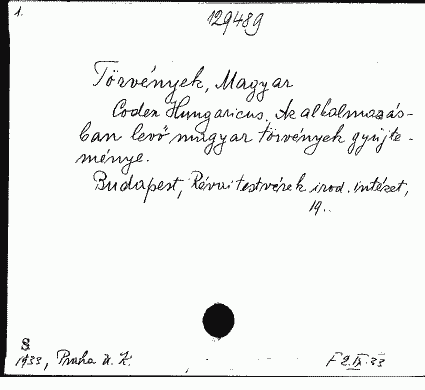 1.
129489
Törvények, Magyar
Codex Hungaricus. Az alkalmazás-
ban levő magyar törvények gyüjte-
ménye.
Budapest, Révai testvérek irod. intézet,
19..
8
1933, Praha U. K.
F 2.IX.33